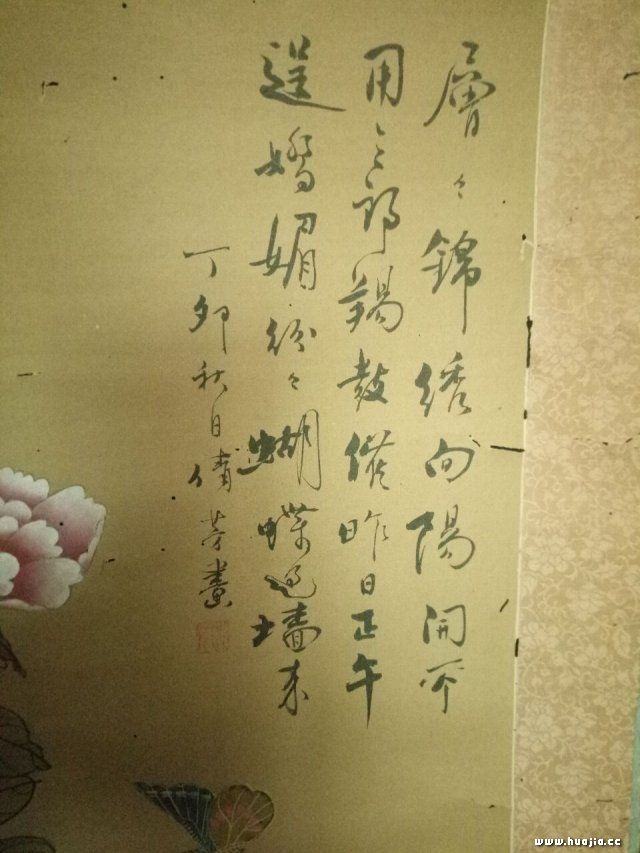 層々錦綉向陽開不
用三郎羯鼓催昨日正午
逞嬌媚紛々蝴蝶過墻来
丁卯秋日倩芳畫
www.huajia.cc